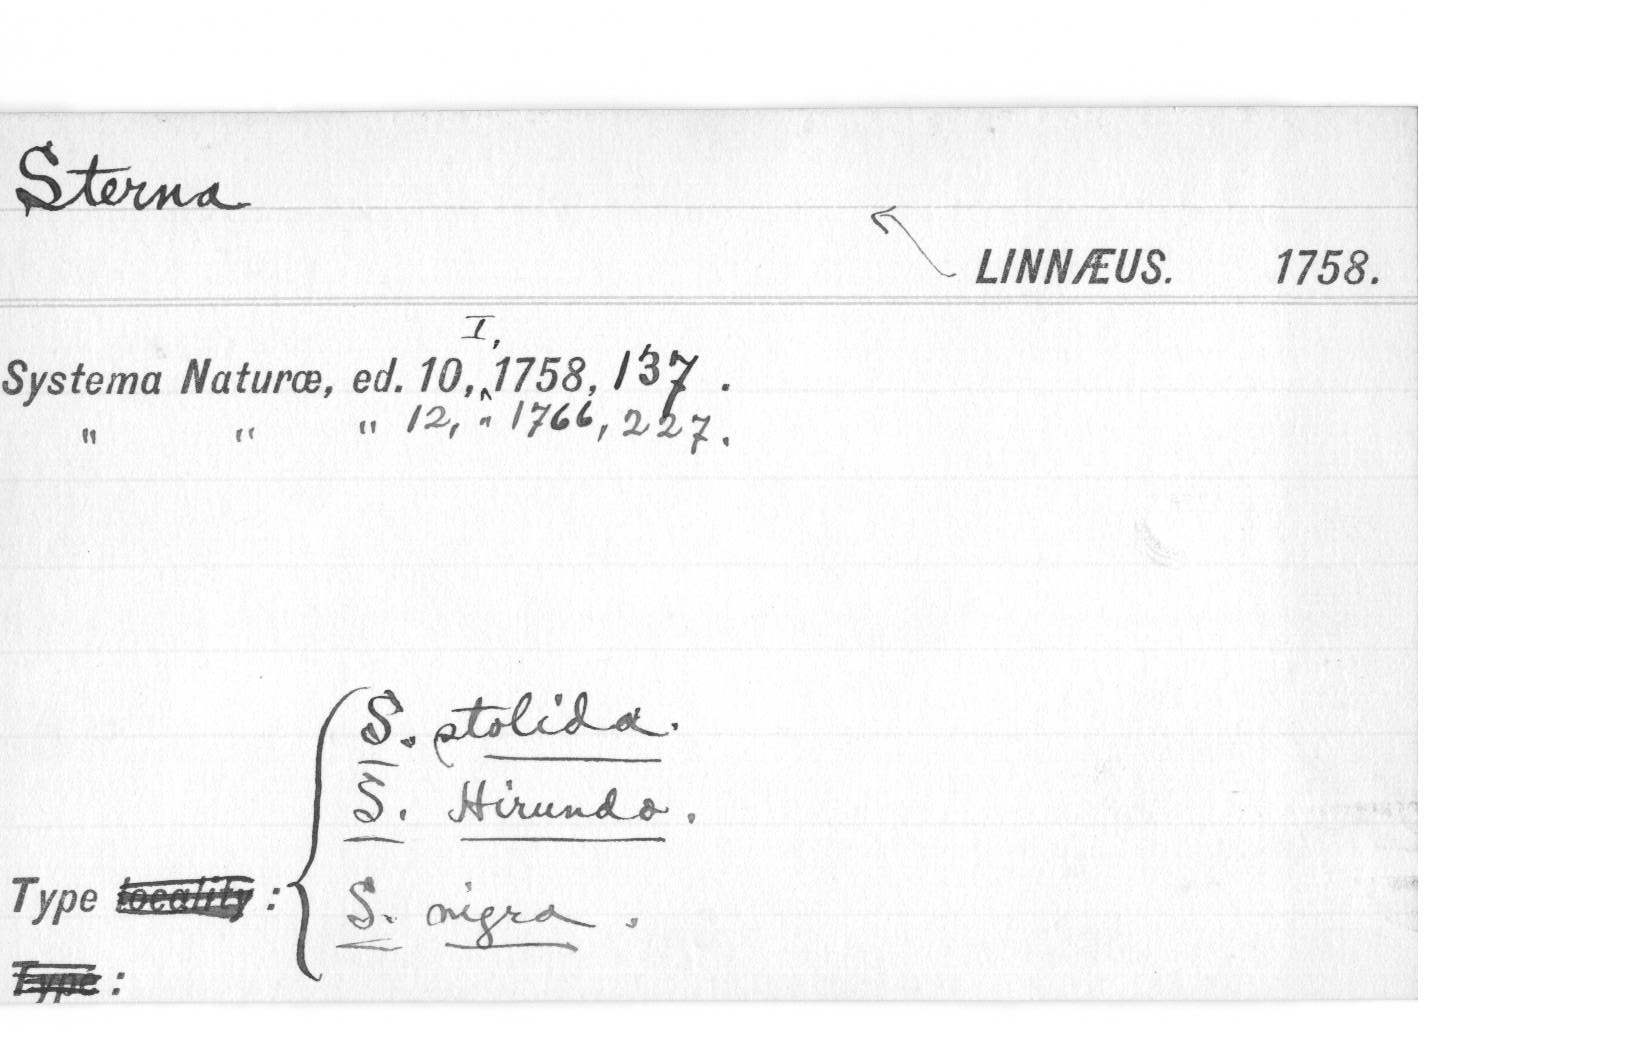 Sterna
LINNÆUS. 1758.
I,
Systema Naturæ, ed. 10, ^ 1758, 137 .
" " " 12, " 1766, 227.
S. stolida.
S. Hirundo.
Type locality : S. nigra .
Type :